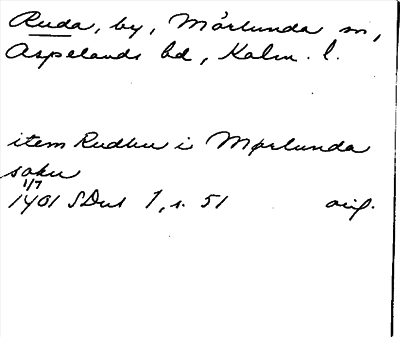 Ruda, by, Mårlunda sn,
Aspelands hd, Kalm. l.
item Rudhu i Mørlunda
sokn
1/7
1401 SDns 1, s. 51 orig.